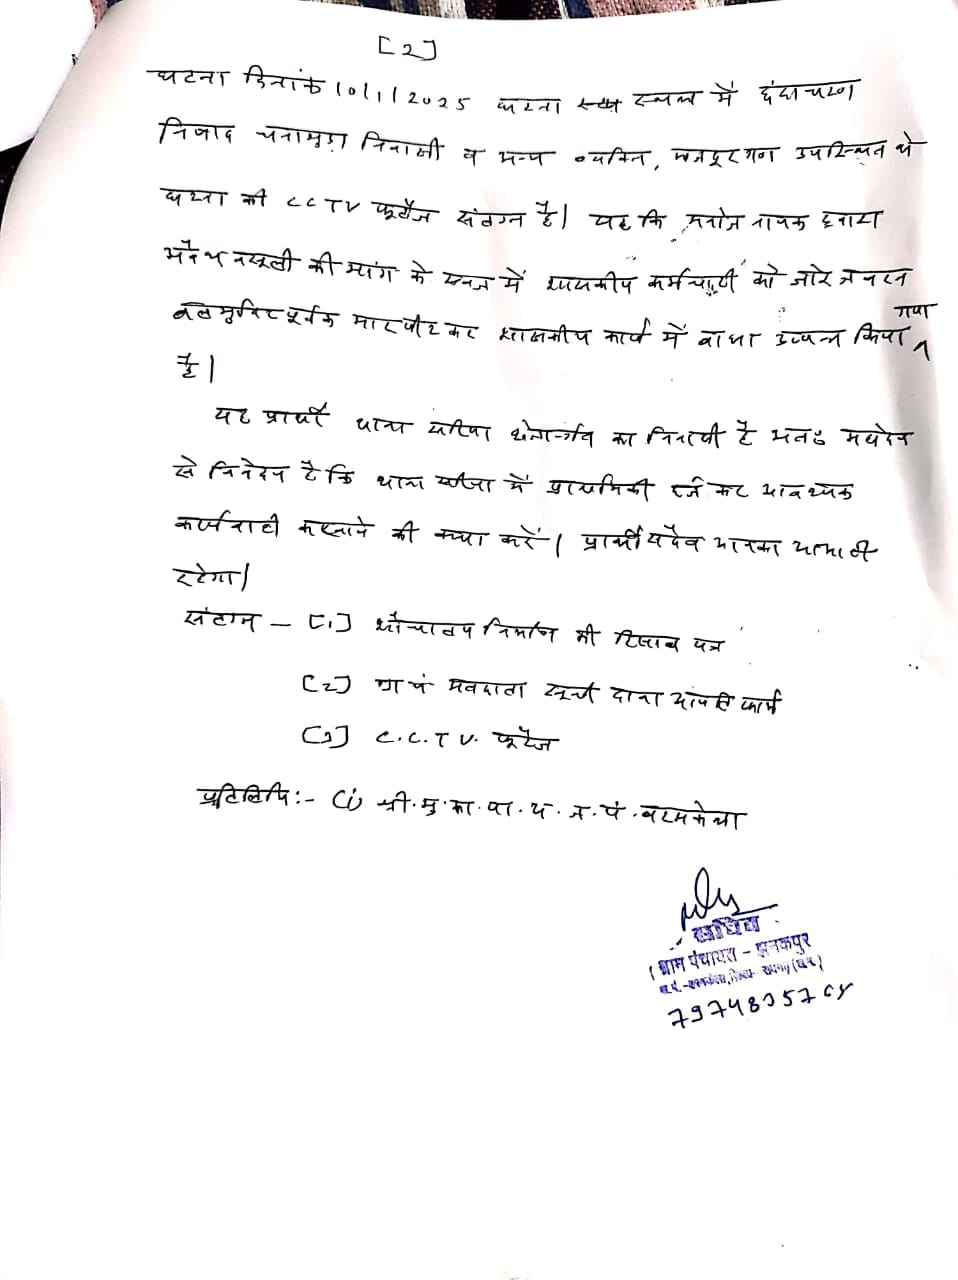 [2]
घटना दिनांक 10/1/2025 घटना स्थल में
निषाद निवासी व अन्य व्यक्ति, मजदूरगण उपस्थित थे
घटना की CCTV फूटेज संलग्न है। यह कि मनोज नायक द्वारा
अवैध वसूली की मांग के में शासकीय कर्मचारी को
बलपूर्वक मारपीट कर शासकीय कार्य में बाधा उत्पन्न किया गया
है।
यह प्रार्थी थाना का निवासी है अतः महोदय
से निवेदन है कि थाना में प्राथमिकी दर्ज कर आवश्यक
कार्यवाही करवाने की कृपा करें। प्रार्थी सदैव आपका आभारी
रहेगा।
संलग्न - [1] शौचालय निर्माण की हिसाब पत्र
[2] ग्रा पं मतदाता सूची दावा आपत्ति फार्म
[3] C.C.T.V. फूटेज
प्रतिलिपि:- (i) श्री. मु. का. पा. अ. ज. पं. बरमकेला
सचिव
ग्राम पंचायत - झनकपुर